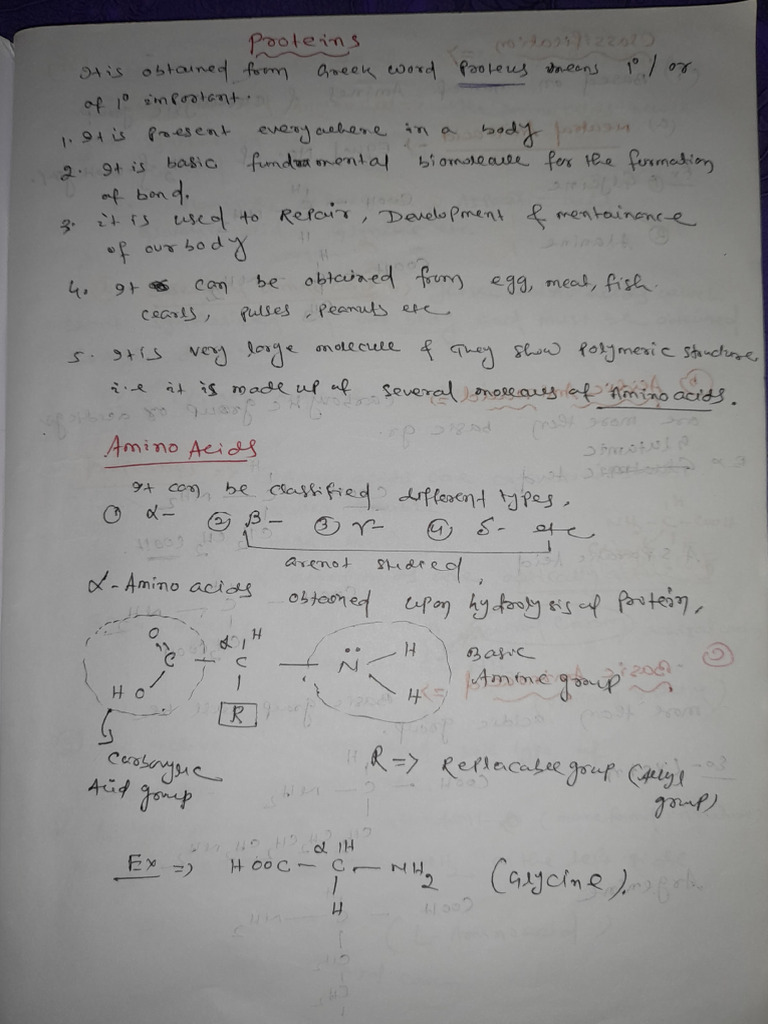 Proteins
It is obtained from Greek word Proteus means 1° / or
of 1° important.
1. It is present everywhere in a body
2. It is basic fundramental biomolecule for the formation
of bond.
3. it is used to Repair, Development & mentainance
of our body
4. It can be obtained from egg, meat, fish.
pulses, peanuts etc
5. It is very large molecule & They show polymeric structure
i.e it is made up of several of Amino acids.
Amino Acids
It can be classified different types,
① α- ② β- ③ γ- ④ δ- etc
are not studied
α-Amino acids obtained upon hydrolysis of Protein,
O α H
C - C - N H
HO R H
Basic
Amine group
Carboxylic
Acid group
R => Replacable group (Alkyl
group)
Ex => HOOC - C - NH2 (Glycine).
α H
H